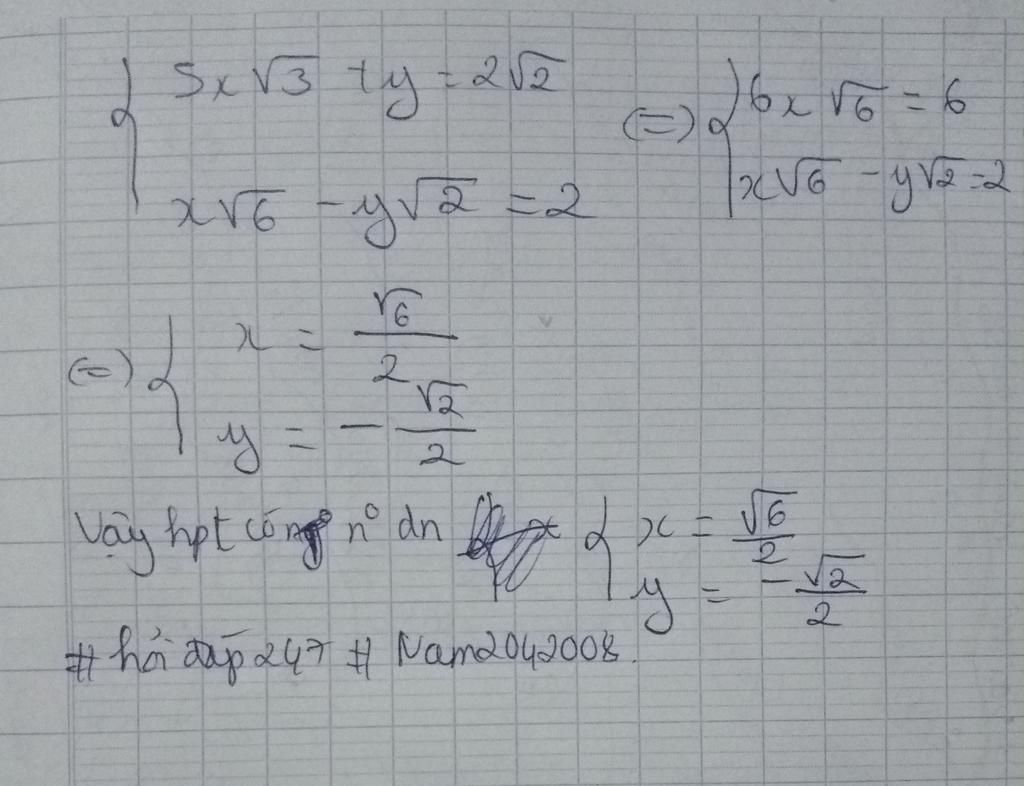 { 5x√3 + y = 2√2 (=) { 6x√6 = 6
x√6 - y√2 = 2 x√6 - y√2 = 2
(=) { x = √6/2
y = -√2/2
Vậy hpt có n° dn { x = √6/2
y = -√2/2
# hỏi đáp 247 # Nam2042008.